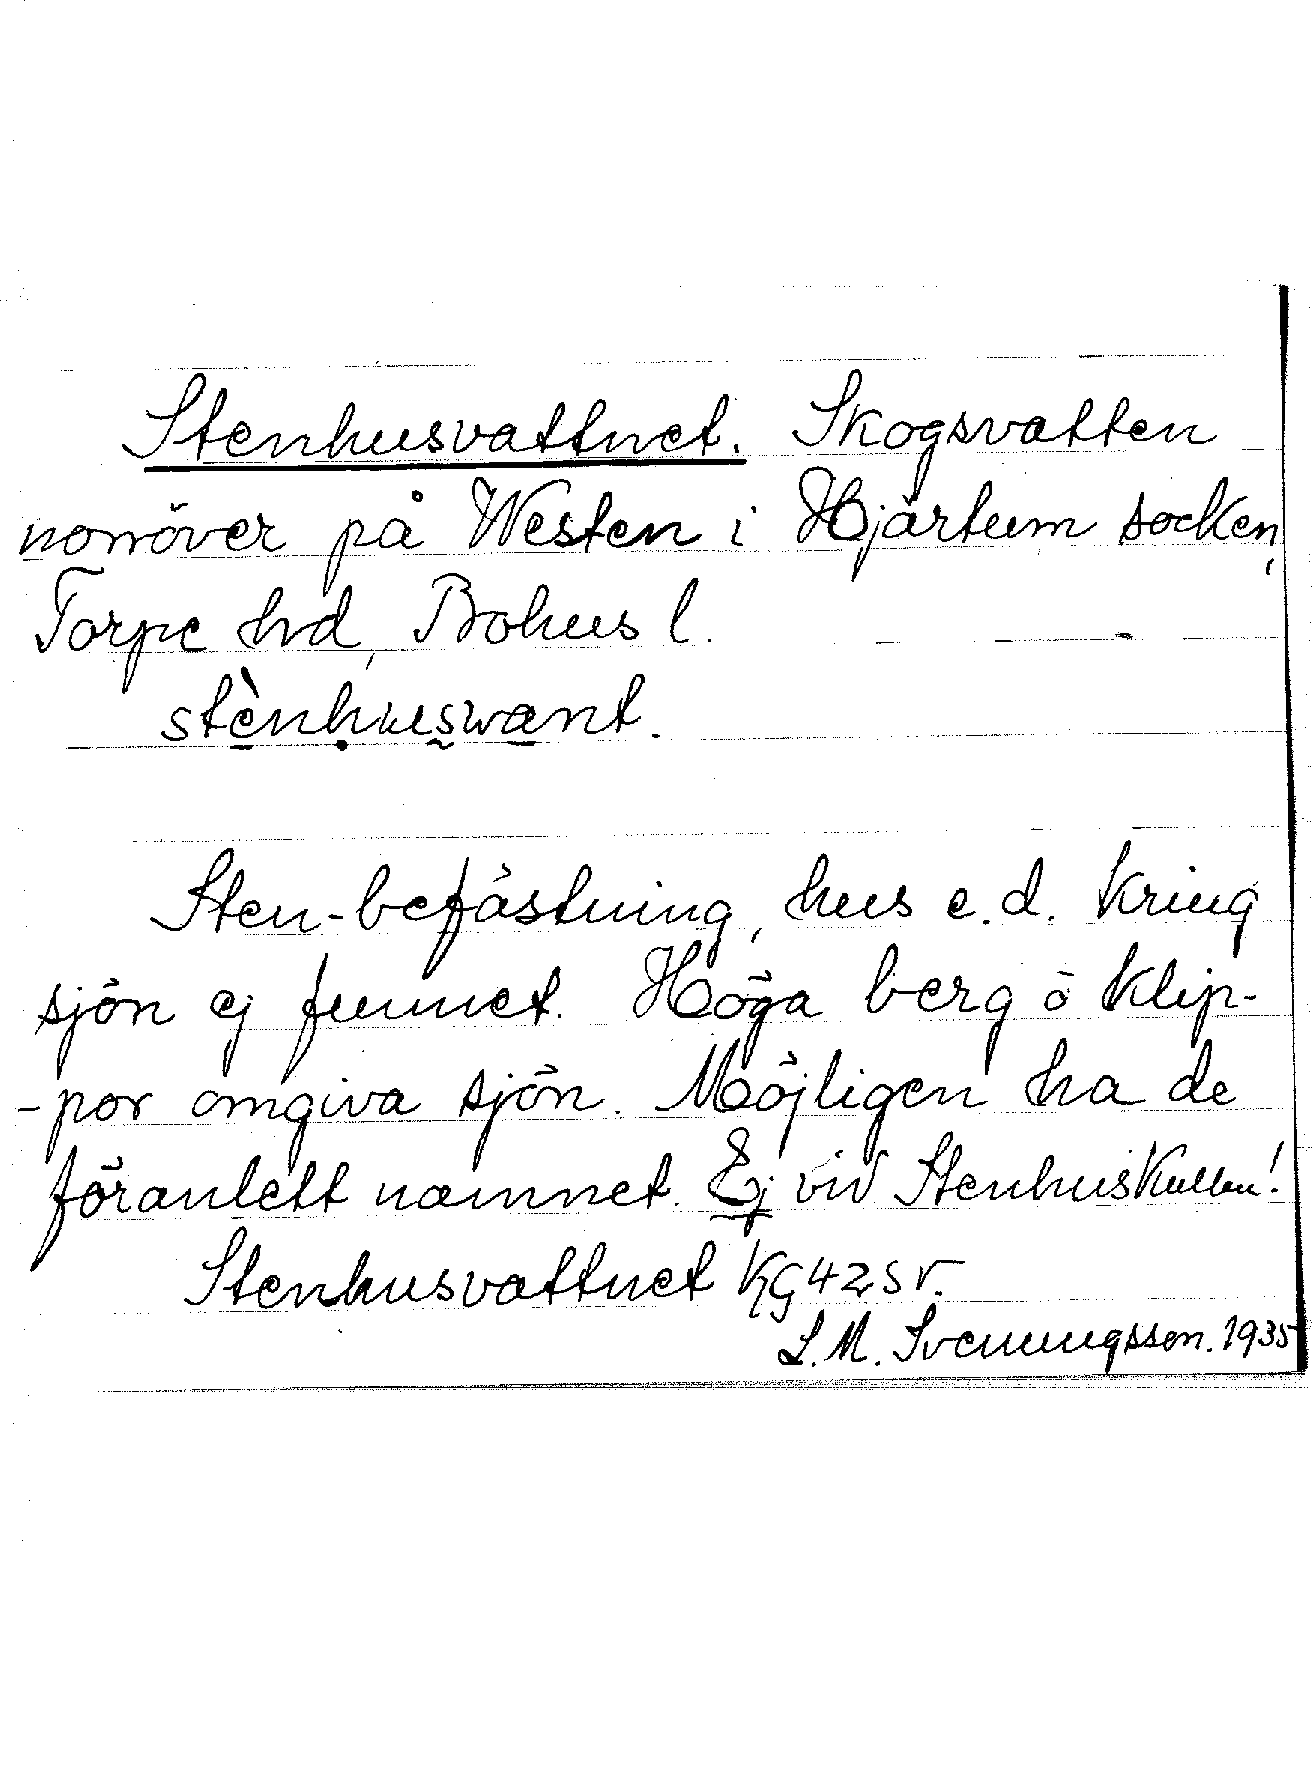 Stenhusvattnet. Skogsvatten
norröver på Westen i Hjärtum socken,
Torpe hd, Bohus l.
stènhuswant.
Sten-befästning, hus e.d. kring
sjön ej funnet. Höga berg o klip-
-por omgiva sjön. Möjligen ha de
föranlett namnet. Ej vid Stenhuskullen!
Stenhusvattnet KG 42 sv.
L. M. Svenungsson. 1935